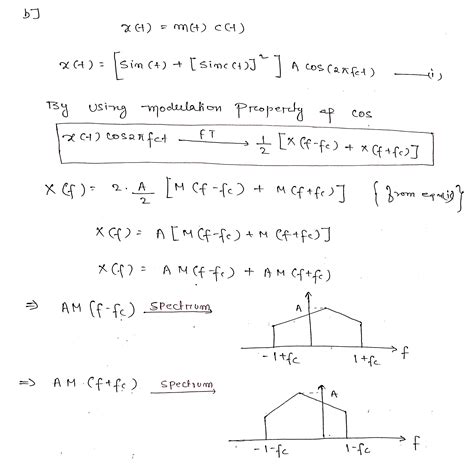 b]
x(t) = m(t) c(t)
x(t) = [Sin(t) + [Sinc(t)]²] A cos(2πfct) —(i)
By using modulation Preoperty of cos
x(t) cos2πfct FT → 1/2 [X(f-fc) + X(f+fc)]
X(f) = 2·A/2 [M(f-fc) + M(f+fc)] {from eqn(i)}
X(f) = A[M(f-fc) + M(f+fc)]
X(f) = AM(f-fc) + AM(f+fc)
⇒ AM(f-fc) Spectrum → A
-1+fc 1+fc f
⇒ AM·(f+fc) Spectrum → A
-1-fc 1-fc f